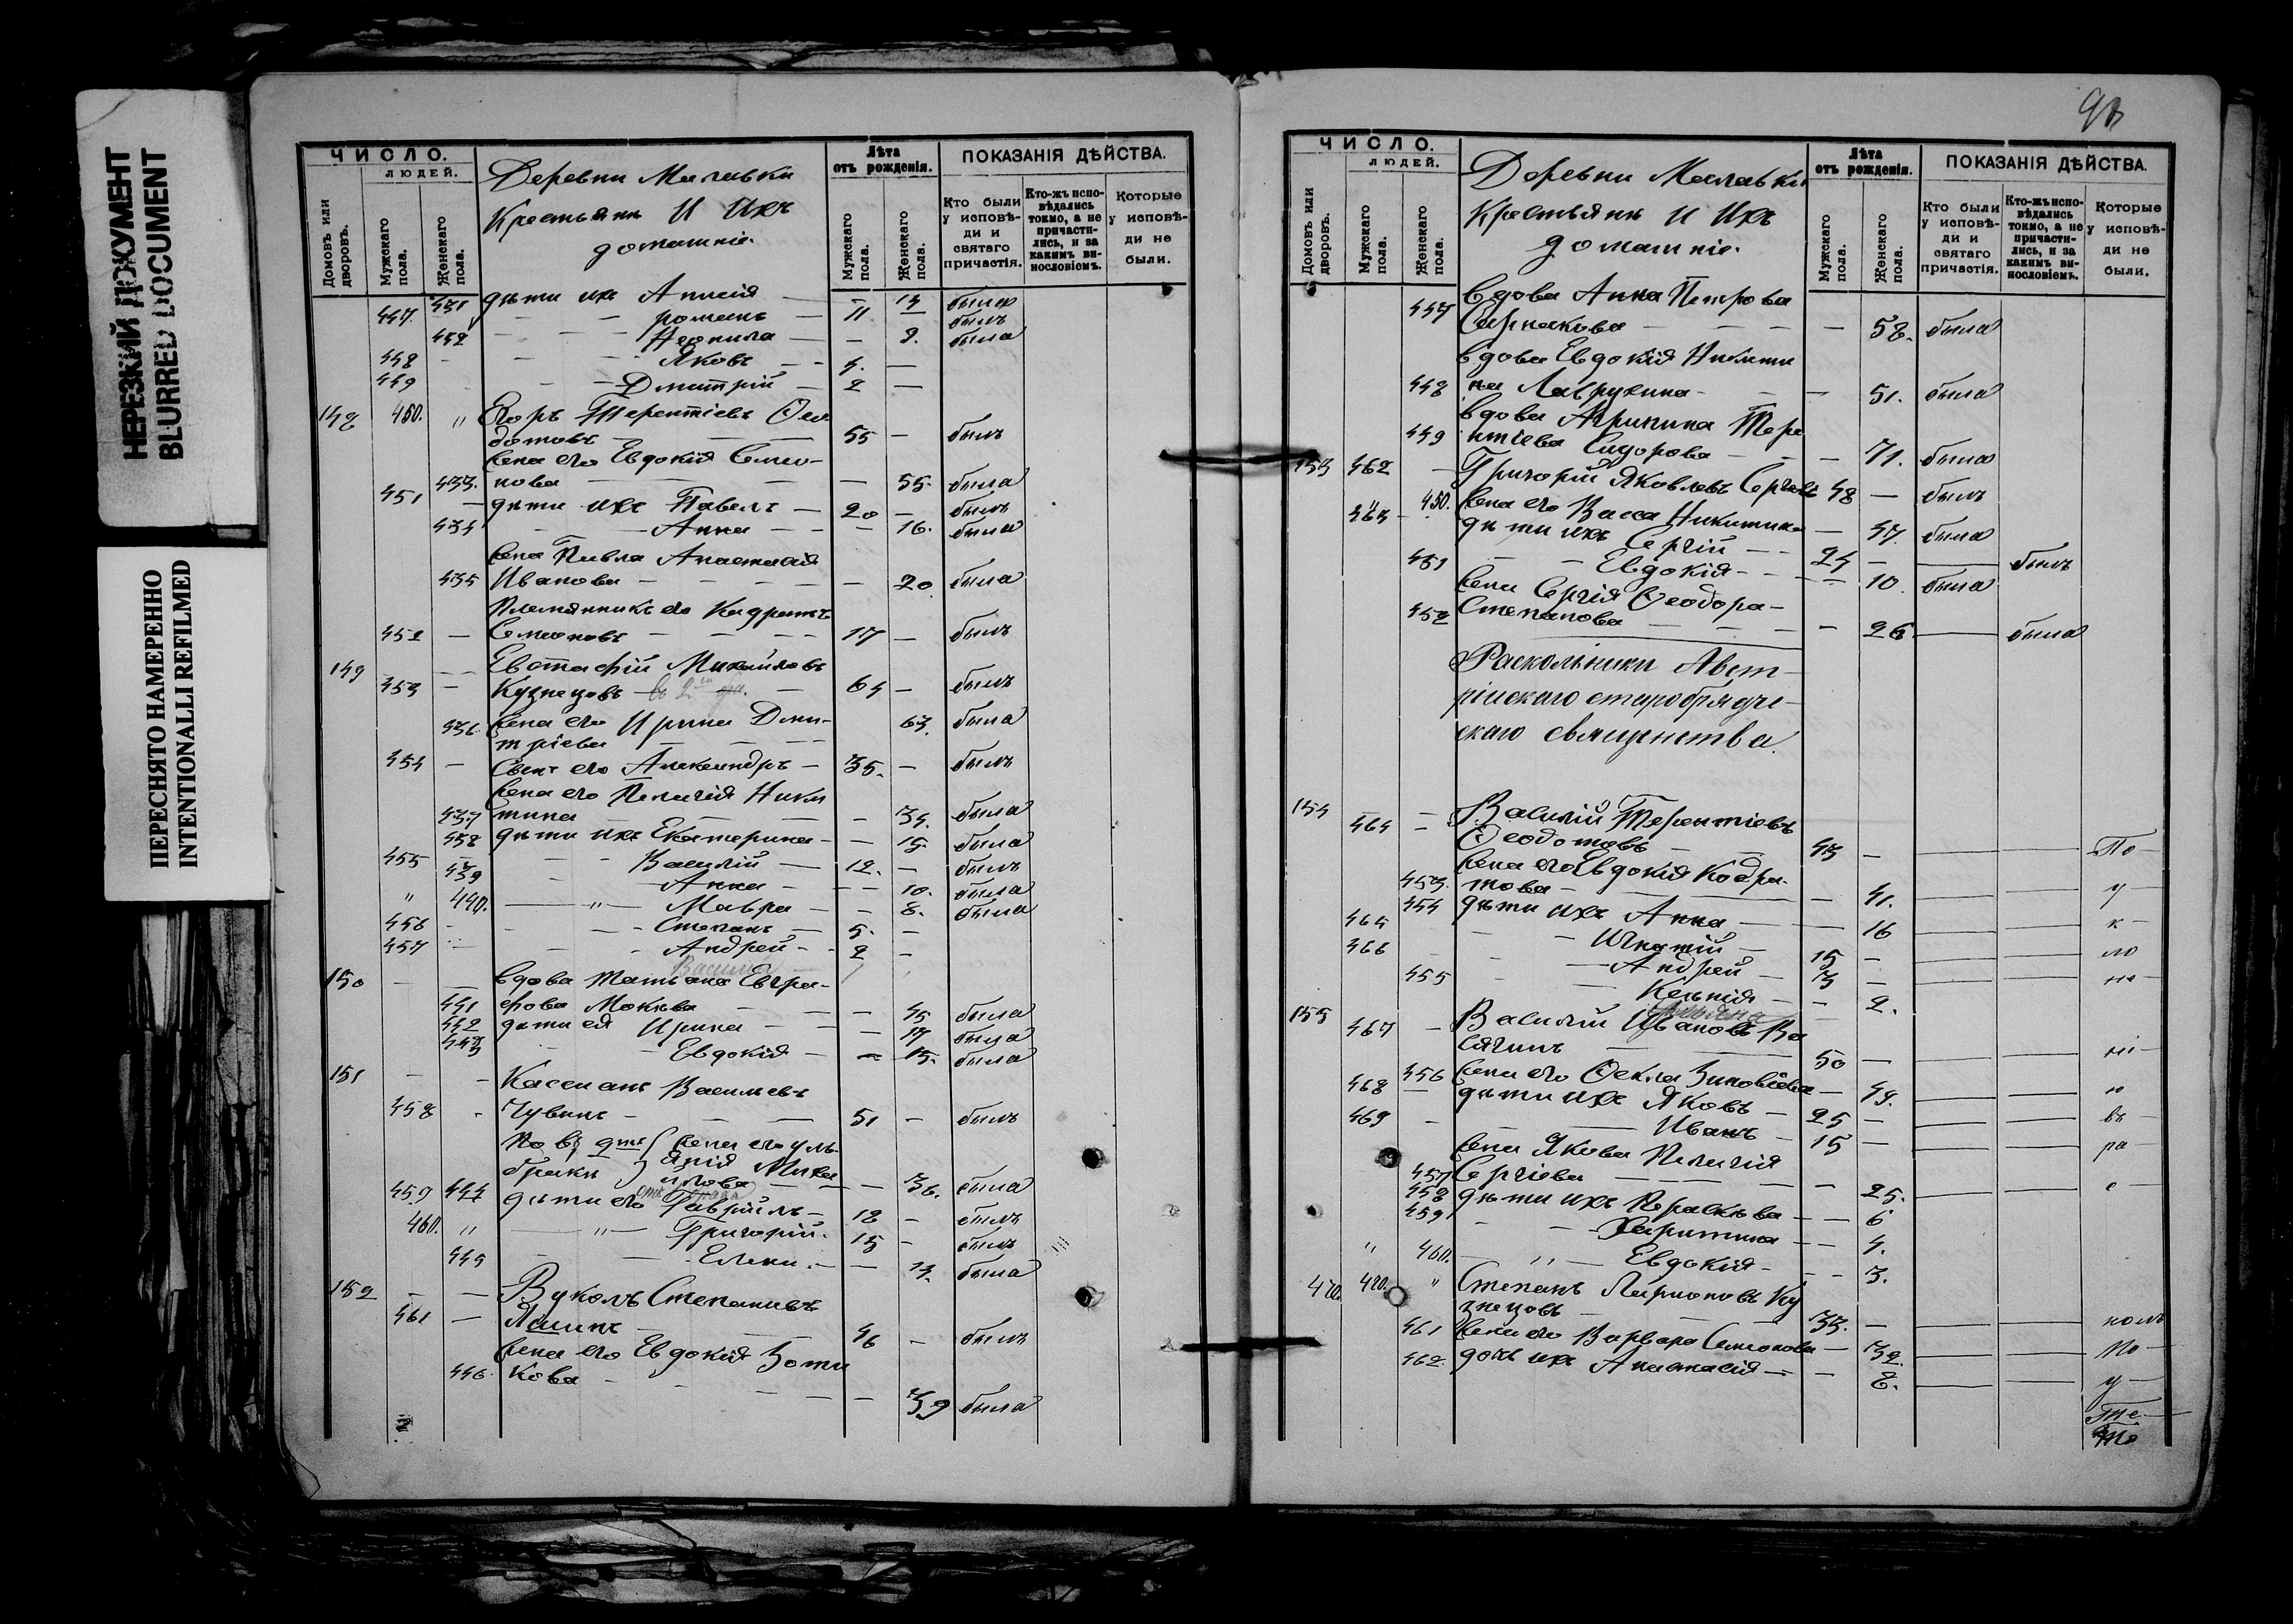 НЕРЕЗКИЙ ДОКУМЕНТ
BLURRED DOCUMENT
ПЕРЕСНЯТО НАМЕРЕННО
INTENTIONALLI REFILMED
ЧИСЛО.
ЛЮДЕЙ.
Домовъ или дворовъ.
Мужскаго пола.
Женскаго пола.
Деревни
Крестьянъ и ихъ
домашніе.
Лѣта
отъ рожденія.
Мужскаго пола.
Женскаго пола.
ПОКАЗАНІЯ ДѢЙСТВА.
Кто были у исповѣди и святаго причастія.
Кто-жъ исповѣдались токмо, а не причастились, и за какимъ винословіемъ.
Которые у исповѣди не были.
431 дѣти ихъ Анисія — 13 была
447. — романъ — 11 — былъ
432 — — Неонила — — 8. была
448 — Яковъ — 4. —
449 — Дмитрій — 2 —
148 450. " Егоръ Терентіевъ Ѳео-
дотовъ — 55 — былъ
жена его Евдокія Семео-
433. нова — — 55. была
451 — дѣти ихъ Павелъ — 20 — былъ
434 — Анна — — 16. была
жена Павла Анастасія
435 Иванова — — 20. была
Племянникъ его Кодратъ
452 — Семеоновъ — 17 — былъ
149 — — Евстафій Михайловъ
453 — Кузнецовъ — 64 — былъ
436. жена его Ирина Дми- 63. была
тріева
454 — Сынъ его Александръ — 35. — былъ
жена его Пелагія Ники
437 тина — — 34. была
438 дѣти ихъ Екатерина — — 15. была
455 — Василій — 12. — былъ
439 — Анна — — 10. была
" 440. — " — Мавра — — 8. была
456 — Степанъ — 5. —
457 — Андрей — 2 —
150 — — вдова Татьяна Евгра-
441 фова — — 45 была
442 дѣти ея Ирина — — 17 была
443 — Евдокія — — 15. была
151 — — Кассианъ Васильевъ
458 — Чувинъ — 51 — былъ
по 2мъ браку жена его Уль-
янія Миха
444 илова — — 36. была
459 дѣти его Гавріилъ — 18 — былъ
460. " — " — Григорій. 15 — былъ
445 — Елена. — — 13. была
152 — — Вуколъ Степановъ
461 — Яшинъ — 46 — былъ
жена его Евдокія Зоти
446. кова — — 39 была
93
ЧИСЛО.
ЛЮДЕЙ.
Домовъ или дворовъ.
Мужскаго пола.
Женскаго пола.
Деревни
Крестьянъ и ихъ
домашніе.
Лѣта
отъ рожденія.
Мужскаго пола.
Женскаго пола.
ПОКАЗАНІЯ ДѢЙСТВА.
Кто были у исповѣди и святаго причастія.
Кто-жъ исповѣдались токмо, а не причастились, и за какимъ винословіемъ.
Которые у исповѣди не были.
вдова Анна Петрова
447 — — 58. была
вдова Евдокія Никити
448 на Лаврухина — — 51. была
вдова Агрипина Тере
449 нтіева Сидорова — — 71. была
153 462 — Григорій Яковлевъ Сергѣевъ 48 — былъ
" 450. жена его Васса Никитина — 47. была
463 — дѣти ихъ Сергій — 24 — — былъ
451 — Евдокія — — 10. была
жена Сергія Ѳеодора
452 Степанова — — 26 — была
Раскольники Авст-
рійскаго старобрядче-
скаго священства.
154 464 — Василій Терентіевъ
Ѳеодотовъ — 43 — — — По-
жена его Евдокія Кодра-
453. това — — 41. — — у
454 дѣти ихъ Анна — — 16 — — к-
465 — Игнатій — 15 — — — ло
466 — Андрей — 3 — — — не-
455 — Ксенія — — 2.
155 467 — Василій Ивановъ Ва
сягинъ — 50 — — — ні-
456 жена его Ѳекла Зиновіева — 49. — — ю
468 — дѣти ихъ Яковъ — 25 — — — въ
469 — Иванъ — 15 — — — ра
жена Якова Пелагія
457 Сергіева — — 25. — — с-
458 дѣти ихъ Параскева — — 6
459 — Харитина — — 4.
" 460. — " — Евдокія — — 3.
470. 470. " Степанъ Ларионовъ Ку
знецовъ — 33. — — — колъ
461 жена его Варвара Семеонова — 32. — — По-
462. дочь ихъ Анастасія — — 8. — — у-